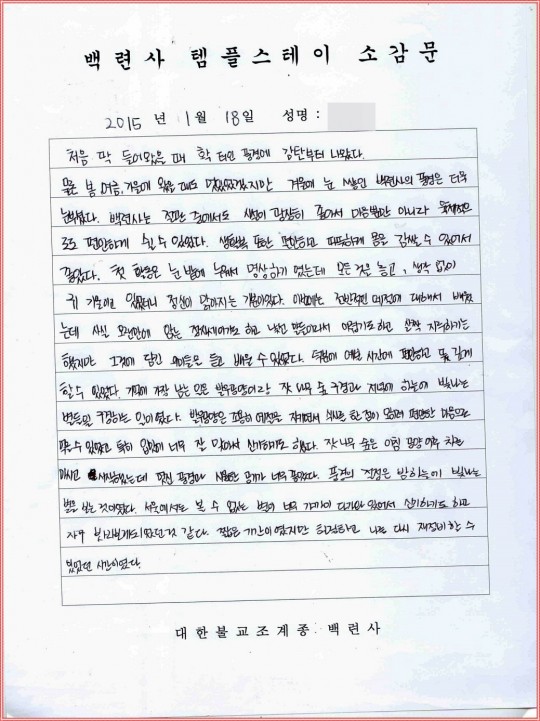 백련사 템플스테이 소감문
2015 년 1월 18일 성명 :
처음 딱 들어왔을 때 확 터인 풍경에 감탄부터 나왔다.
물론 봄, 여름, 가을에 왔을 때도 멋있었겠지만 겨울에 눈 쌓인 백련사의 풍경은 더욱
눈부셨다. 백련사는 전과 중에서도 시설이 굉장히 좋아서 마음뿐만 아니라
으로도 편안하게 쉴 수 있었다. 생활복 또한 편안하고 따뜻하게 몸을 감쌀 수 있어서
좋았다. 첫 활동은 눈 밭에 누워서 명상하기 였는데 모든 것을 놓고, 생각 없이
귀 기울이고 있으니 정신이 맑아지는 기분이었다. 이번에는 전반적인 예절에 대해서 배웠
는데 사실 오랜만에 앉는 하고 낯선 어렵기도 하고 살짝 지루하기는
했지만 그것에 담긴 의미들을 듣고 배울 수 있었다. 시간에 편안하고 뜻 깊게
할 수 있었다. 기억에 가장 남는 것은 발우공양이랑 잣나무 숲 구경과 저녁에 하늘에 빛나는
별들을 구경하는 일이었다. 발우공양은 조용히 예절을 지키면서 편안한 마음으로
먹을 수 있었고 특히 입맛에 너무 잘 맞아서 신기하기도 했다. 잣나무 숲은 아침 공양 이후 차를
마시고 시작했는데 멋진 풍경과 시원한 공기가 너무 좋았다. 풍경의 절정은 밤하늘에 빛나는
별을 보는 것이었다. 서울에서는 볼 수 없는 별이 너무 가까이 다가와 있어서 신기하기도 하고
자꾸 바라보게 되었던 것 같다. 짧은 기간이였지만 하고 나를 다시 재정비 할 수
있었던 시간이였다.
대한불교조계종 백련사